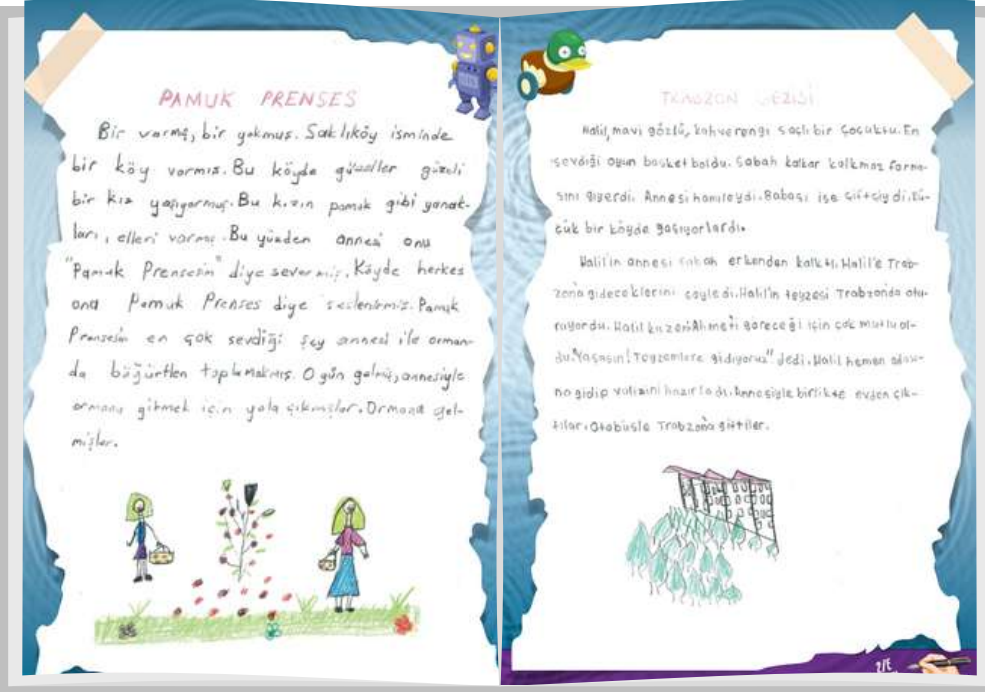 PAMUK PRENSES
Bir varmış, bir yokmuş. Saklıköy isminde
bir köy varmış. Bu köyde güzeller güzeli
bir kız yaşıyormuş. Bu kızın pamuk gibi yanak-
ları, elleri varmış. Bu yüzden annesi onu
"Pamuk Prensesim" diye severmiş. Köyde herkes
ona Pamuk Prenses diye seslenirmiş. Pamuk
Prensesin en çok sevdiği şey annesi ile orman-
da böğürtlen toplamakmış. O gün gelmiş, annesiyle
ormana gitmek için yola çıkmışlar. Ormana gel-
mişler.
TRABZON GEZİSİ
Halil, mavi gözlü, kahverengi saçlı bir çocuktu. En
sevdiği oyun basketboldu. Sabah kalkar kalkmaz forma-
sını giyerdi. Annesi hamileydi. Babası ise çiftçiydi. Kü-
çük bir köyde yaşıyorlardı.
Halil'in annesi sabah erkenden kalktı. Halil'e Trab-
zona gideceklerini söyledi. Halil'in teyzesi Trabzonda otu-
ruyordu. Halil kuzeni Ahmet'i göreceği için çok mutlu ol-
du. "Yaşasın! Teyzemlere gidiyoruz" dedi. Halil hemen odası-
na gidip valizini hazırladı. Annesiyle birlikte evden çık-
tılar. Otobüsle Trabzona gittiler.
2/E